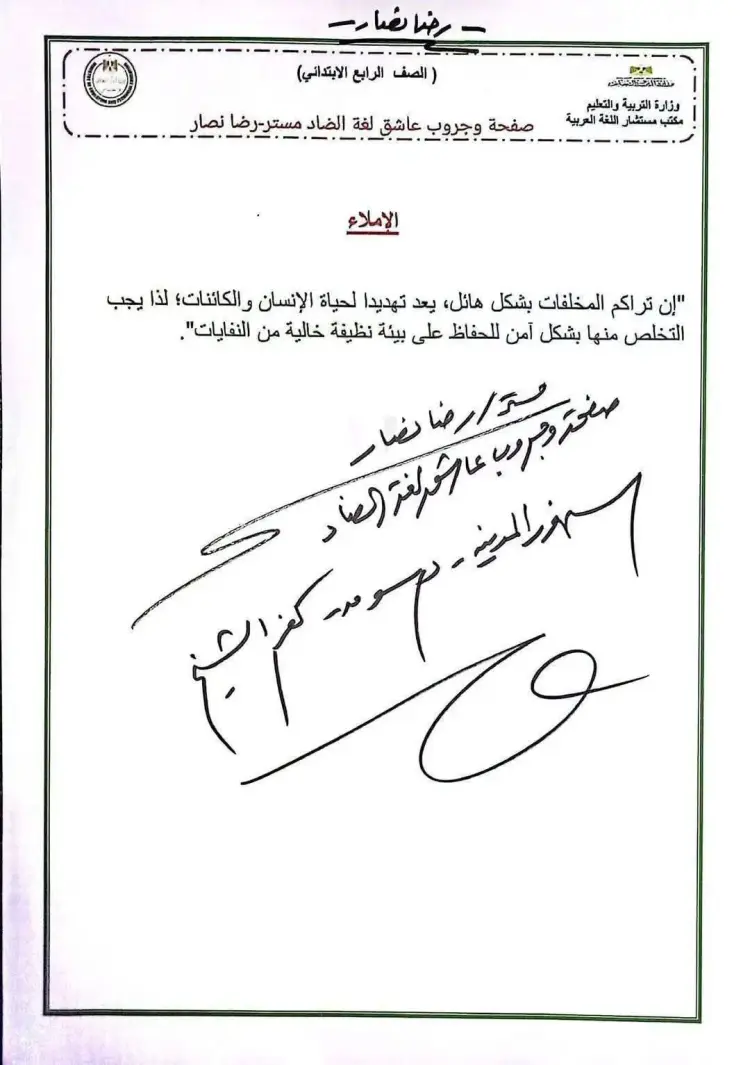 - رضا نصار -
( الصف الرابع الابتدائي)
وزارة التربية والتعليم
مكتب مستشار اللغة العربية
صفحة وجروب عاشق لغة الضاد مستر-رضا نصار
الإملاء
"إن تراكم المخلفات بشكل هائل، يعد تهديدا لحياة الإنسان والكائنات؛ لذا يجب
التخلص منها بشكل آمن للحفاظ على بيئة نظيفة خالية من النفايات".
مستر/ رضا نصار
صفحة وجروب عاشق لغة الضاد
سنهور المدينة - دسوق - كفر الشيخ